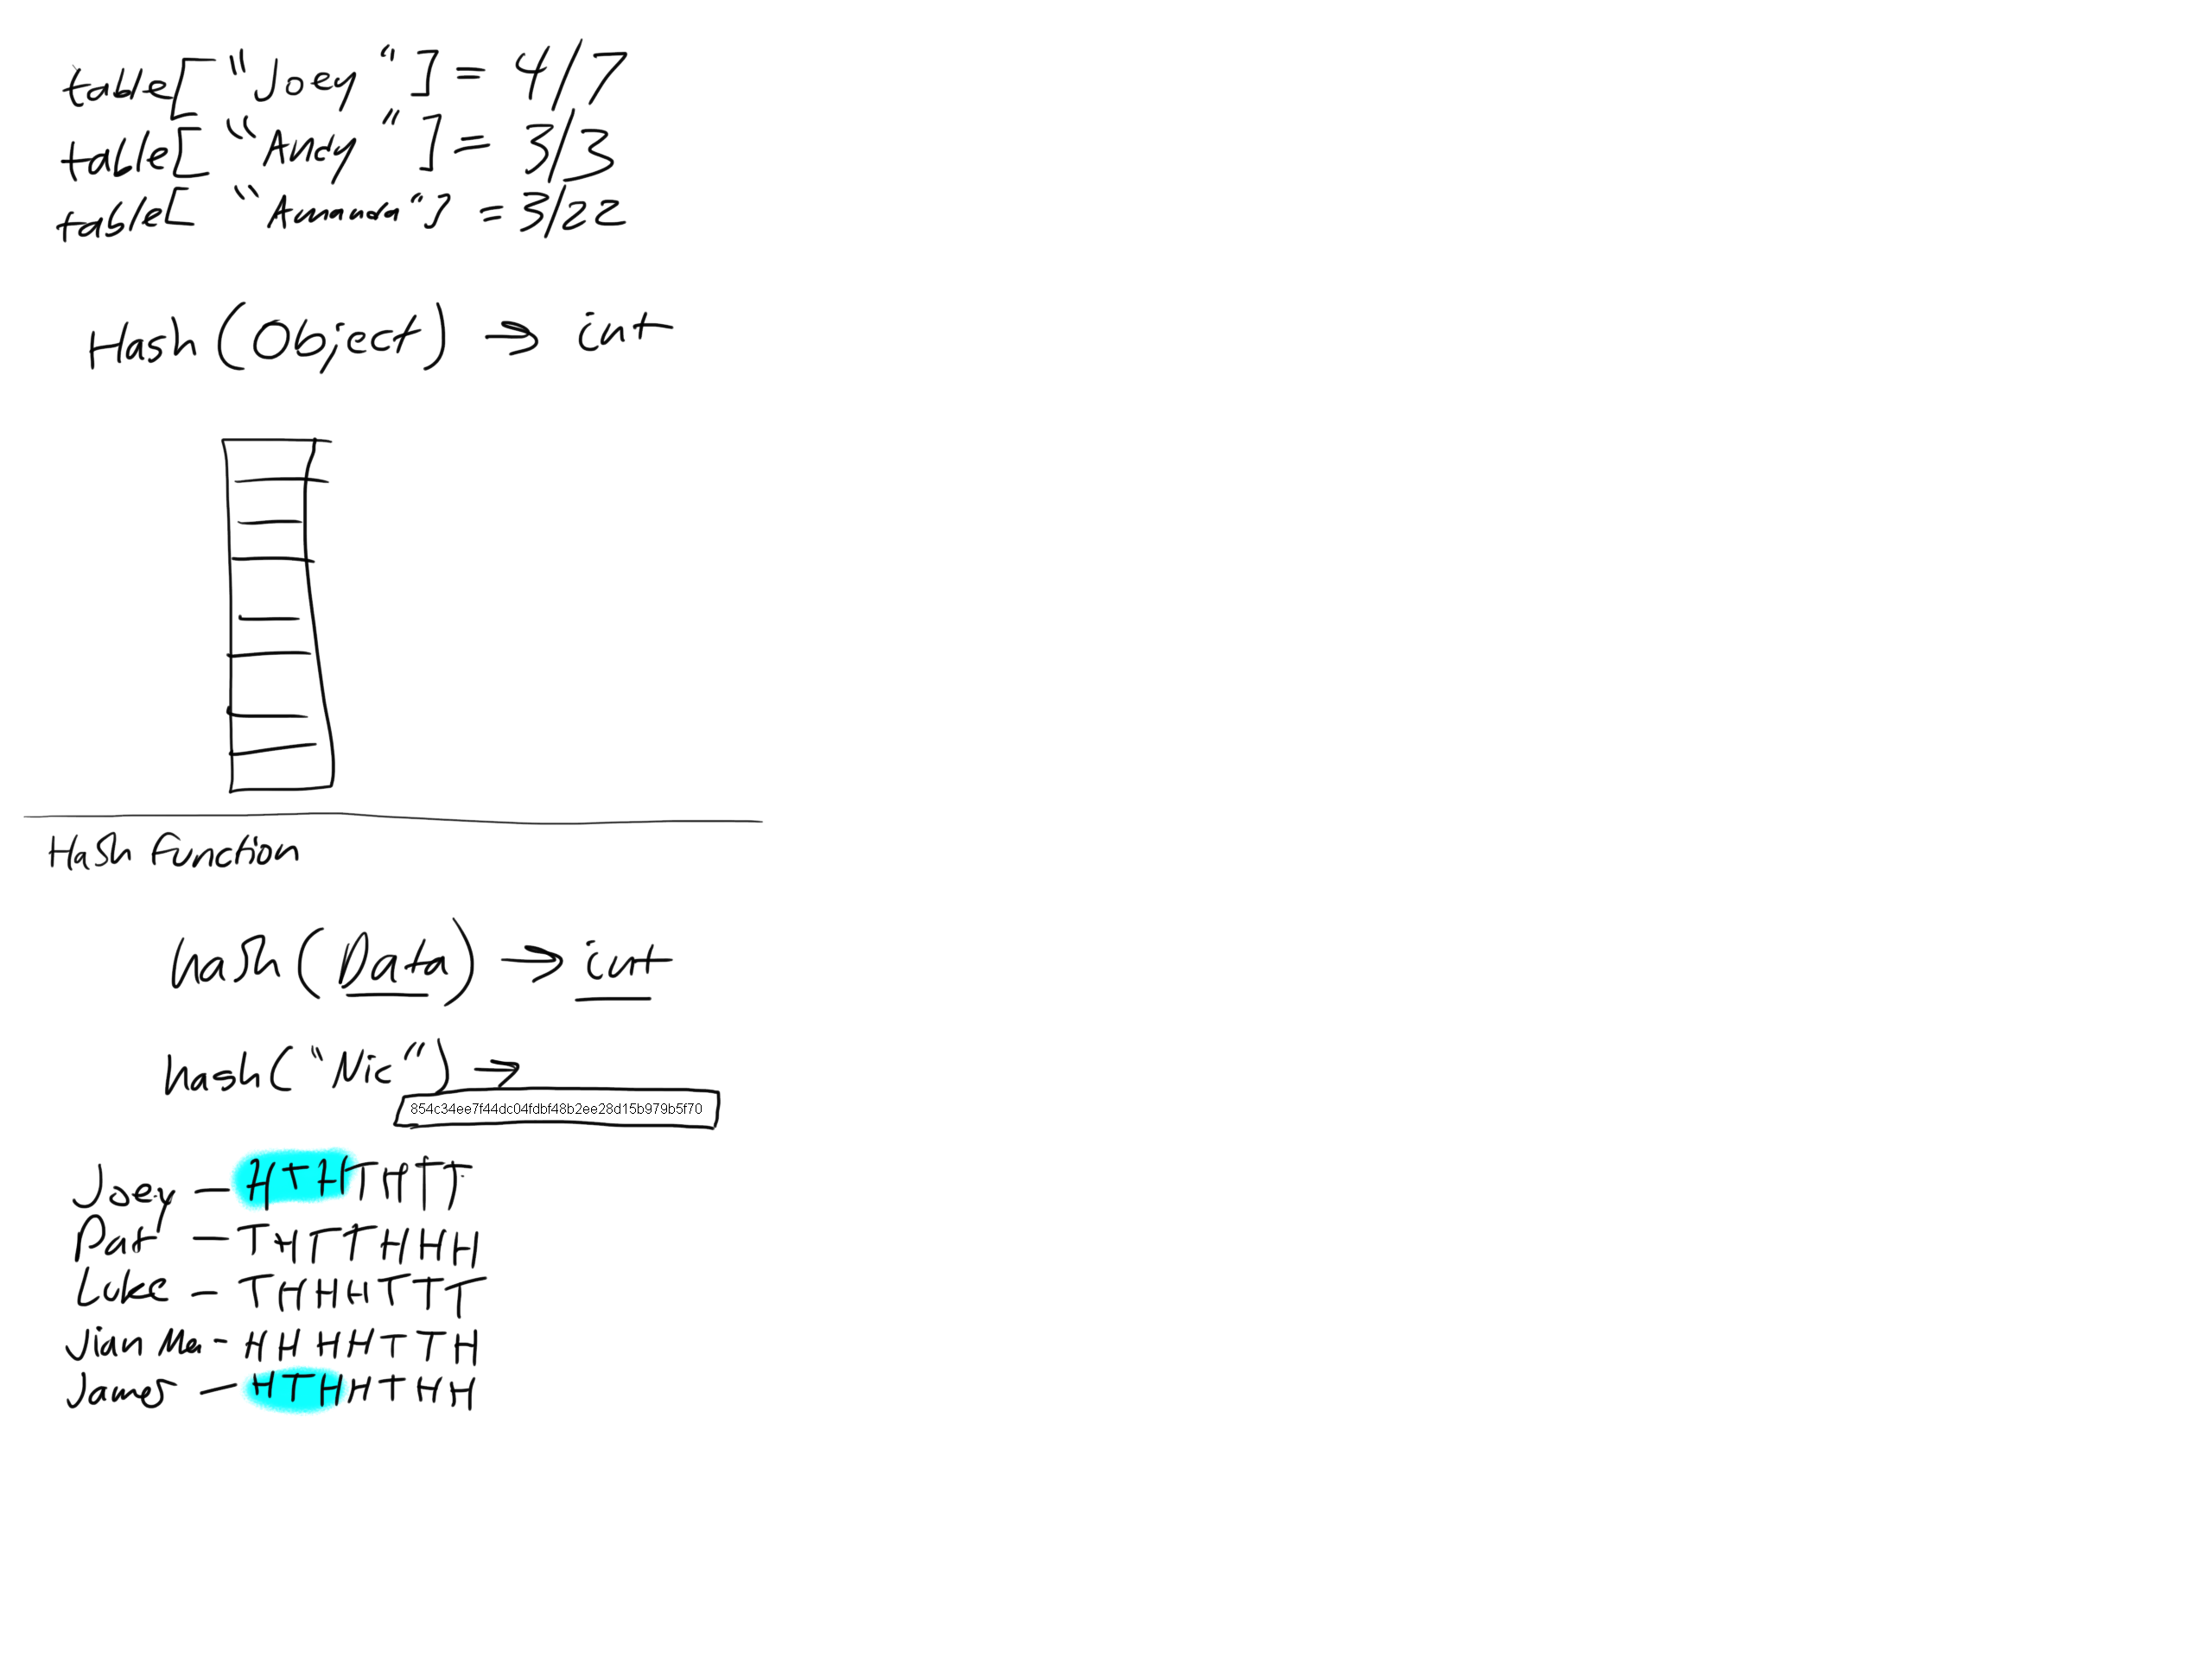 table["Joey"] = 4/7
table["Andy"] = 3/3
table["Amanda"] = 3/22
Hash(Object) → int
Hash Function
hash(Data) → int
hash("Nic") →
854c34ee7f44dc04fdbf48b2ee28d15b979b5f70
Joey - HTHTHTT
Pat - THTTHHH
Luke - THHHTTT
Jian Mei - HHHHTTH
James - HTHHTHH